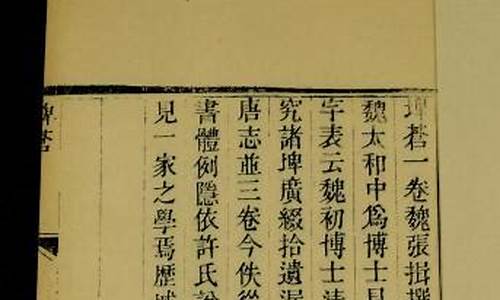 埤蒼一卷魏張揖撰
魏太和中為博士見
字表云魏初博士清
究諸埤廣綴拾遺漏
唐志並三卷今佚從
書體例隱依許氏說
見一家之學焉歷城
埤蒼